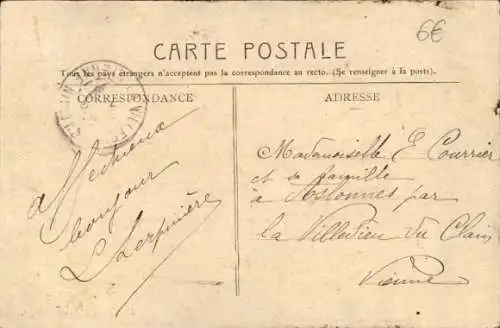 6€
CARTE POSTALE
Tous les pays étrangers n'acceptent pas la correspondance au recto. (Se renseigner à la poste).
CORRESPONDANCE
affectueux
bonjour
ADRESSE
Mademoiselle E Courrier
et sa famille
à Aslonnes par
la Villedieu du Clain
Vienne